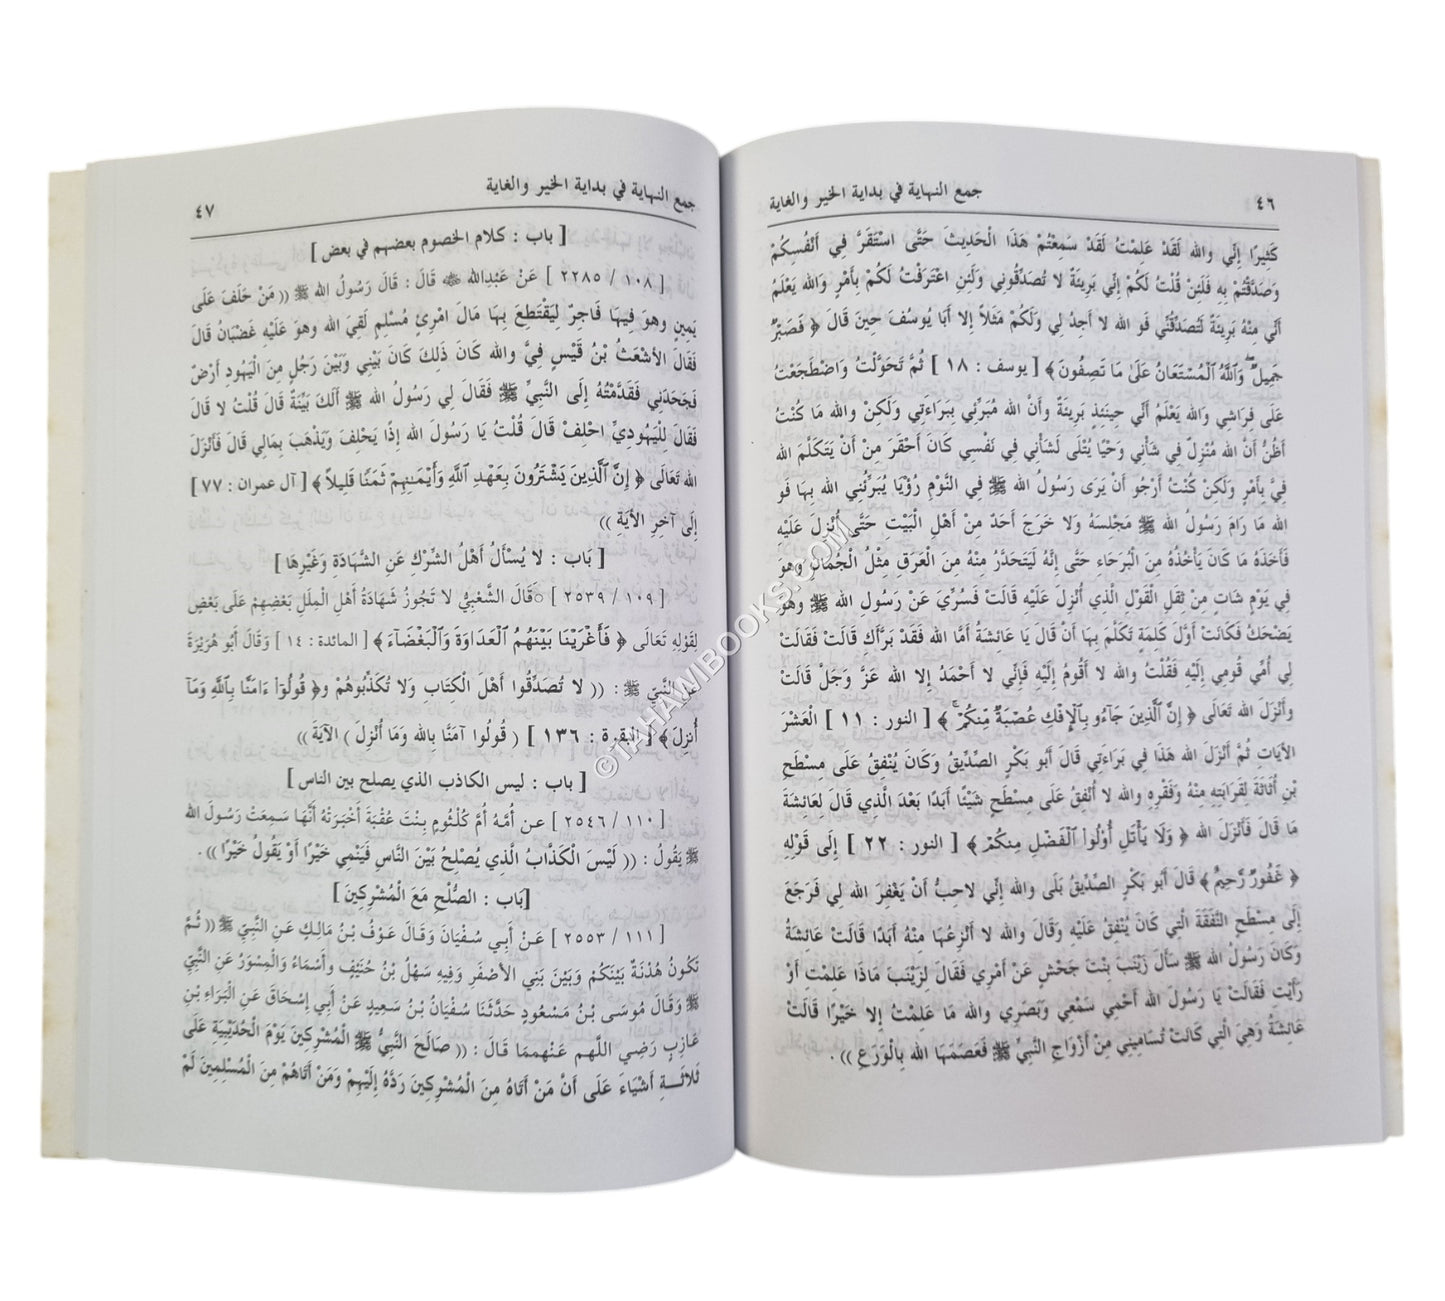 ٤٦ جمع النهاية في بداية الخير والغاية
كَثِيرًا إِنِّي والله لَقَدْ عَلِمْتُ لَقَدْ سَمِعْتُمْ هَذَا الْحَدِيثَ حَتَّى اسْتَقَرَّ فِي أَنْفُسِكُمْ
وَصَدَّقْتُمْ بِهِ فَلَئِنْ قُلْتُ لَكُمْ إِنِّي بَرِيئَةٌ لا تُصَدِّقُونِي وَلَئِنِ اعْتَرَفْتُ لَكُمْ بِأَمْرٍ والله يَعْلَمُ
أَنِّي مِنْهُ بَرِيئَةٌ لَتُصَدِّقُنِّي فَو الله لا أجدُ لِي وَلَكُمْ مَثَلاً إِلا أَبَا يُوسُفَ حِينَ قَالَ ﴿ فَصَبْرٌ
جَمِيلٌ وَٱللَّهُ ٱلْمُسْتَعَانُ عَلَىٰ مَا تَصِفُونَ ﴾ [ يوسف : ١٨ ] ثُمَّ تَحَوَّلْتُ وَاضْطَجَعْتُ
عَلَى فِرَاشِي والله يَعْلَمُ أَنِّي حِينَئِذٍ بَرِيئَةٌ وأنَّ الله مُبَرِّئِي بِبَرَاءَتِي وَلَكِنْ والله مَا كُنْتُ
أَظُنُّ أنَّ الله مُنْزِلٌ فِي شَأْنِي وَحْيًا يُتْلَى لَشَأْنِي فِي نَفْسِي كَانَ أَحْقَرَ مِنْ أَنْ يَتَكَلَّمَ الله
فِيَّ بِأَمْرٍ وَلَكِنْ كُنْتُ أَرْجُو أَنْ يَرَى رَسُولُ الله ﷺ فِي النَّوْمِ رُؤْيَا يُبَرِّئُنِي الله بِهَا فَو
الله مَا رَامَ رَسُولُ الله ﷺ مَجْلِسَهُ وَلا خَرَجَ أَحَدٌ مِنْ أَهْلِ الْبَيْتِ حَتَّى أُنْزِلَ عَلَيْهِ
فَأَخَذَهُ مَا كَانَ يَأْخُذُهُ مِنَ الْبُرَحَاءِ حَتَّى إِنَّهُ لَيَتَحَدَّرُ مِنْهُ مِنَ الْعَرَقِ مِثْلُ الْجُمَانِ وهوَ
فِي يَوْمٍ شَاتٍ مِنْ ثِقَلِ الْقَوْلِ الَّذِي أُنْزِلَ عَلَيْهِ قَالَتْ فَسُرِّيَ عَنْ رَسُولِ الله ﷺ وهوَ
يَضْحَكُ فَكَانَتْ أَوَّلَ كَلِمَةٍ تَكَلَّمَ بِهَا أَنْ قَالَ يَا عَائِشَةُ أَمَّا الله فَقَدْ بَرَّأَكِ قَالَتْ فَقَالَتْ
لِي أُمِّي قُومِي إِلَيْهِ فَقُلْتُ والله لا أَقُومُ إِلَيْهِ فَإِنِّي لا أَحْمَدُ إِلا الله عَزَّ وَجَلَّ قَالَتْ
وأَنْزَلَ الله تَعَالَى ﴿ إِنَّ ٱلَّذِينَ جَآءُو بِٱلْإِفْكِ عُصْبَةٌ مِّنكُمْ ﴾ [ النور : ١١ ] الْعَشْرَ
الآيَاتِ ثُمَّ أَنْزَلَ الله هَذَا فِي بَرَاءَتِي قَالَ أَبُو بَكْرٍ الصِّدِّيقُ وَكَانَ يُنْفِقُ عَلَى مِسْطَحِ
بْنِ أُثَاثَةَ لِقَرَابَتِهِ مِنْهُ وَفَقْرِهِ والله لا أُنْفِقُ عَلَى مِسْطَحٍ شَيْئًا أَبَدًا بَعْدَ الَّذِي قَالَ لِعَائِشَةَ
مَا قَالَ فَأَنْزَلَ الله ﴿ وَلَا يَأْتَلِ أُوْلُواْ ٱلْفَضْلِ مِنكُمْ ﴾ [ النور : ٢٢ ] إِلَى قَوْلِهِ
﴿ غَفُورٌ رَّحِيمٌ ﴾ قَالَ أَبُو بَكْرٍ الصِّدِّيقُ بَلَى والله إِنِّي لاحِبُّ أَنْ يَغْفِرَ الله لِي فَرَجَعَ
إِلَى مِسْطَحٍ النَّفَقَةَ الَّتِي كَانَ يُنْفِقُ عَلَيْهِ وَقَالَ والله لا أَنْزِعُهَا مِنْهُ أَبَدًا قَالَتْ عَائِشَةُ
وَكَانَ رَسُولُ الله ﷺ سَأَلَ زَيْنَبَ بِنْتَ جَحْشٍ عَنْ أَمْرِي فَقَالَ لِزَيْنَبَ مَاذَا عَلِمْتِ أَوْ
رَأَيْتِ فَقَالَتْ يَا رَسُولَ الله أَحْمِي سَمْعِي وَبَصَرِي والله مَا عَلِمْتُ إِلا خَيْرًا قَالَتْ
عَائِشَةُ وَهِيَ الَّتِي كَانَتْ تُسَامِينِي مِنْ أَزْوَاجِ النَّبِيِّ ﷺ فَعَصَمَهَا الله بِالْوَرَعِ )) .
جمع النهاية في بداية الخير والغاية ٤٧
[ باب : كلام الخصوم بعضهم في بعض ]
[ ١٠٨ / ٢٢٨٥ ] عَنْ عَبْدِالله قَالَ : قَالَ رَسُولُ الله ﷺ (( مَنْ حَلَفَ عَلَى
يَمِينٍ وهوَ فِيهَا فَاجِرٌ لِيَقْتَطِعَ بِهَا مَالَ امْرِئٍ مُسْلِمٍ لَقِيَ الله وهوَ عَلَيْهِ غَضْبَانُ قَالَ
فَقَالَ الأَشْعَثُ بْنُ قَيْسٍ فِيَّ والله كَانَ ذَلِكَ كَانَ بَيْنِي وَبَيْنَ رَجُلٍ مِنَ الْيَهُودِ أَرْضٌ
فَجَحَدَنِي فَقَدَّمْتُهُ إِلَى النَّبِيِّ ﷺ فَقَالَ لِي رَسُولُ الله ﷺ أَلَكَ بَيِّنَةٌ قَالَ قُلْتُ لا قَالَ
فَقَالَ لِلْيَهُودِيِّ احْلِفْ قَالَ قُلْتُ يَا رَسُولَ الله إِذًا يَحْلِفَ وَيَذْهَبَ بِمَالِي قَالَ فَأَنْزَلَ
الله تَعَالَى ﴿ إِنَّ ٱلَّذِينَ يَشْتَرُونَ بِعَهْدِ ٱللَّهِ وَأَيْمَـٰنِهِمْ ثَمَنًا قَلِيلاً ﴾ [ آل عمران : ٧٧ ]
إِلَى آخِرِ الآيَةِ ))
[ بَاب : لا يُسْأَلُ أَهْلُ الشِّرْكِ عَنِ الشَّهَادَةِ وَغَيْرِهَا ]
[ ١٠٩ / ٢٥٣٩ ] قَالَ الشَّعْبِيُّ لا تَجُوزُ شَهَادَةُ أَهْلِ الْمِلَلِ بَعْضِهِمْ عَلَى بَعْضٍ
لِقَوْلِهِ تَعَالَى ﴿ فَأَغْرَيْنَا بَيْنَهُمُ ٱلْعَدَاوَةَ وَٱلْبَغْضَآءَ ﴾ [ المائدة : ١٤ ] وَقَالَ أَبُو هُرَيْرَةَ
عَنِ النَّبِيِّ ﷺ : (( لا تُصَدِّقُوا أَهْلَ الْكِتَابِ وَلا تُكَذِّبُوهُمْ و﴿ قُولُوٓاْ ءَامَنَّا بِٱللَّهِ وَمَآ
أُنزِلَ ﴾ [ البقرة : ١٣٦ ] ( قُولُوا آمَنَّا بِالله وَمَا أُنْزِلَ ) الآيَةَ ))
[ باب : ليس الكاذب الذي يصلح بين الناس ]
[ ١١٠ / ٢٥٤٦ ] عـن أُمِّـهُ أُمَّ كُلْثُومٍ بِنْتَ عُقْبَةَ أَخْبَرَتْهُ أَنَّهَا سَمِعَتْ رَسُولَ الله
ﷺ يَقُولُ : (( لَيْسَ الْكَذَّابُ الَّذِي يُصْلِحُ بَيْنَ النَّاسِ فَيَنْمِي خَيْرًا أَوْ يَقُولُ خَيْرًا )) .
[بَاب : الصُّلْحِ مَعَ الْمُشْرِكِينَ ]
[ ١١١ / ٢٥٥٣ ] عَـنْ أَبِـي سُـفْيَانَ وَقَـالَ عَـوْفُ بْـنُ مَالِـكٍ عَـنِ النَّبِـيِّ ﷺ (( ثُـمَّ
تَكُونُ هُدْنَةٌ بَيْنَكُمْ وَبَيْنَ بَنِي الأَصْفَرِ وَفِيهِ سَهْلُ بْنُ حُنَيْفٍ وأَسْمَاءُ وَالْمِسْوَرُ عَنِ النَّبِيِّ
ﷺ وَقَالَ مُوسَى بْنُ مَسْعُودٍ حَدَّثَنَا سُفْيَانُ بْنُ سَعِيدٍ عَنْ أَبِي إِسْحَاقَ عَنِ الْبَرَاءِ بْنِ
عَازِبٍ رَضِي اللهم عَنْهممَا قَالَ : (( صَالَحَ النَّبِيُّ ﷺ الْمُشْرِكِينَ يَوْمَ الْحُدَيْبِيَةِ عَلَى
ثَلاثَــةِ أَشْيَاءَ عَلَى أَنَّ مَنْ أَتَاهُ مِنَ الْمُشْرِكِينَ رَدَّهُ إِلَيْهِمْ وَمَنْ أَتَاهُمْ مِنَ الْمُسْلِمِينَ لَمْ
©TAHAWIBOOKS.COM